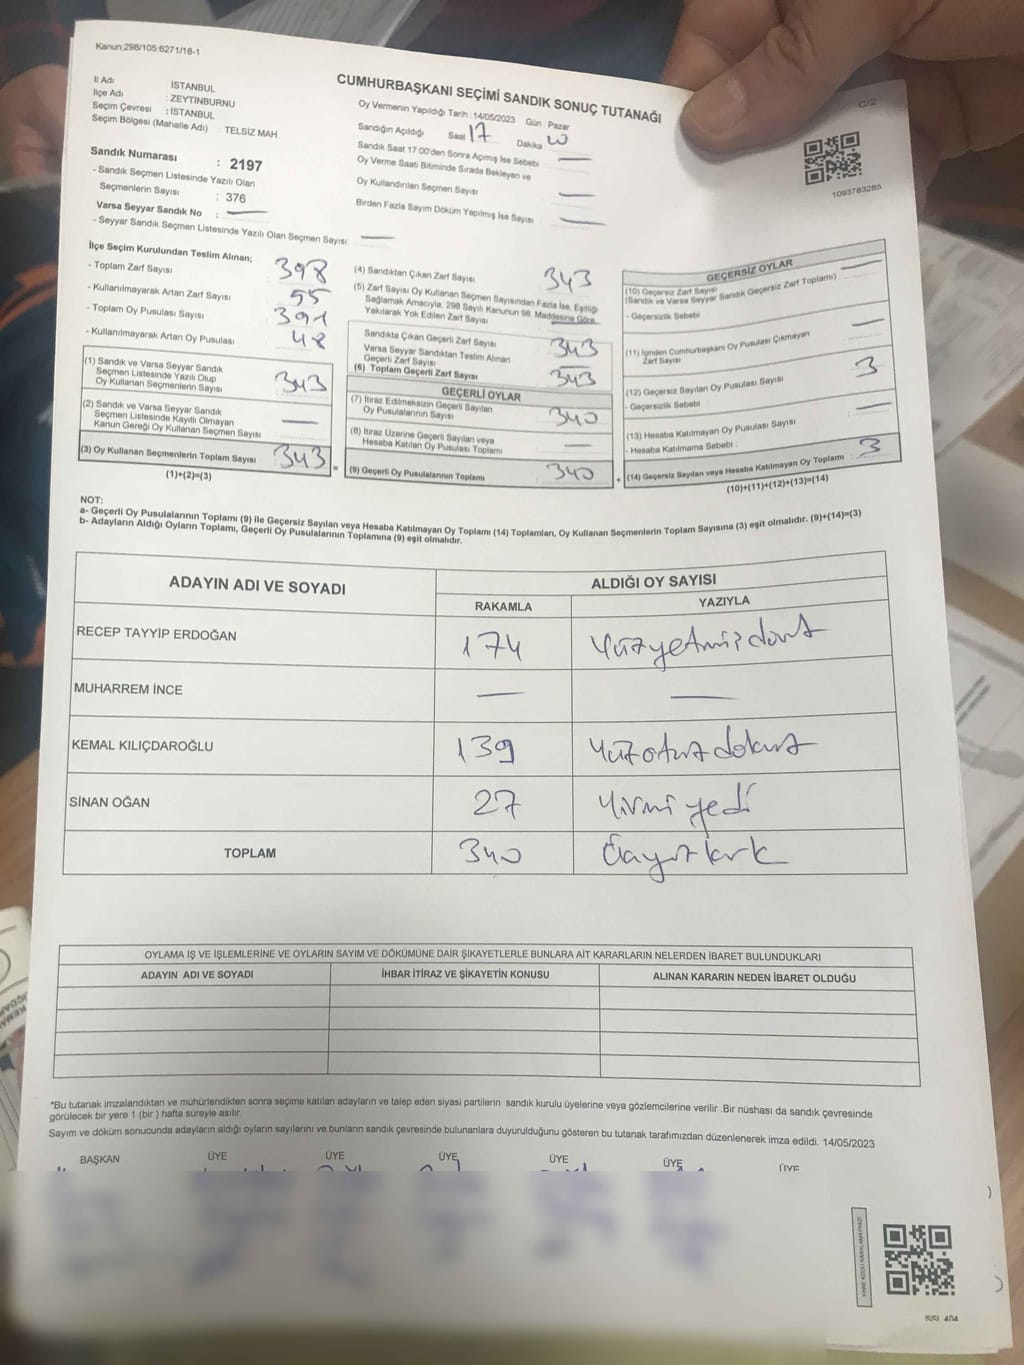 Kanun;298/105;6271/18-1
CUMHURBAŞKANI SEÇİMİ SANDIK SONUÇ TUTANAĞI
C/2
İl Adı : İSTANBUL
İlçe Adı : ZEYTİNBURNU
Seçim Çevresi : İSTANBUL
Seçim Bölgesi (Mahalle Adı) : TELSİZ MAH.
Oy Vermenin Yapıldığı Tarih : 14/05/2023 Gün : Pazar
Sandığın Açıldığı Saat 17 Dakika
Sandık Saat 17:00'den Sonra Açılmış İse Sebebi —
Oy Verme Saati Bitiminde Sırada Bekleyen ve
Oy Kullandırılan Seçmen Sayısı —
Birden Fazla Sayım Döküm Yapılmış İse Sayısı —
1093783285
Sandık Numarası : 2197
- Sandık Seçmen Listesinde Yazılı Olan
Seçmenlerin Sayısı : 376
Varsa Seyyar Sandık No : —
- Seyyar Sandık Seçmen Listesinde Yazılı Olan Seçmen Sayısı: —
İlçe Seçim Kurulundan Teslim Alınan;
- Toplam Zarf Sayısı 398
- Kullanılmayarak Artan Zarf Sayısı 55
- Toplam Oy Pusulası Sayısı 391
- Kullanılmayarak Artan Oy Pusulası 48
(1) Sandık ve Varsa Seyyar Sandık
Seçmen Listesinde Yazılı Olup
Oy Kullanan Seçmenlerin Sayısı 343
(2) Sandık ve Varsa Seyyar Sandık
Seçmen Listesinde Kayıtlı Olmayan
Kanun Gereği Oy Kullanan Seçmen Sayısı —
(3) Oy Kullanan Seçmenlerin Toplam Sayısı 343
(1)+(2)=(3)
=
(4) Sandıktan Çıkan Zarf Sayısı 343
(5) Zarf Sayısı Oy Kullanan Seçmen Sayısından Fazla İse, Eşitliği
Sağlamak Amacıyla, 298 Sayılı Kanunun 98. Maddesine Göre,
Yakılarak Yok Edilen Zarf Sayısı
Sandıkta Çıkan Geçerli Zarf Sayısı 343
Varsa Seyyar Sandıktan Teslim Alınan
Geçerli Zarf Sayısı —
(6) Toplam Geçerli Zarf Sayısı 343
GEÇERLİ OYLAR
(7) İtiraz Edilmeksizin Geçerli Sayılan
Oy Pusulalarının Sayısı 340
(8) İtiraz Üzerine Geçerli Sayılan veya
Hesaba Katılan Oy Pusulası Toplamı —
(9) Geçerli Oy Pusulalarının Toplamı 340
+
GEÇERSİZ OYLAR
(10) Geçersiz Zarf Sayısı —
(Sandık ve Varsa Seyyar Sandık Geçersiz Zarf Toplamı)
- Geçersizlik Sebebi
(11) İçinden Cumhurbaşkanı Oy Pusulası Çıkmayan
Zarf Sayısı —
(12) Geçersiz Sayılan Oy Pusulası Sayısı 3
- Geçersizlik Sebebi
(13) Hesaba Katılmayan Oy Pusulası Sayısı —
- Hesaba Katılmama Sebebi :
(14) Geçersiz Sayılan veya Hesaba Katılmayan Oy Toplamı 3
(10)+(11)+(12)+(13)=(14)
NOT:
a- Geçerli Oy Pusulalarının Toplamı (9) ile Geçersiz Sayılan veya Hesaba Katılmayan Oy Toplamı (14) Toplamları, Oy Kullanan Seçmenlerin Toplam Sayısına (3) eşit olmalıdır. (9)+(14)=(3)
b- Adayların Aldığı Oyların Toplamı, Geçerli Oy Pusulalarının Toplamına (9) eşit olmalıdır.
ADAYIN ADI VE SOYADI
ALDIĞI OY SAYISI
RAKAMLA YAZIYLA
RECEP TAYYİP ERDOĞAN 174 Yüzyetmişdört
MUHARREM İNCE — —
KEMAL KILIÇDAROĞLU 139 Yüzotuzdokuz
SİNAN OĞAN 27 Yirmi yedi
TOPLAM 340 Üçyüzkırk
OYLAMA İŞ VE İŞLEMLERİNE VE OYLARIN SAYIM VE DÖKÜMÜNE DAİR ŞİKAYETLERLE BUNLARA AİT KARARLARIN NELERDEN İBARET BULUNDUKLARI
ADAYIN ADI VE SOYADI İHBAR İTİRAZ VE ŞİKAYETİN KONUSU ALINAN KARARIN NEDEN İBARET OLDUĞU
*Bu tutanak imzalandıktan ve mühürlendikten sonra seçime katılan adayların ve talep eden siyasi partilerin sandık kurulu üyelerine veya gözlemcilerine verilir .Bir nüshası da sandık çevresinde
görülecek bir yere 1 (bir ) hafta süreyle asılır.
Sayım ve döküm sonucunda adayların aldığı oyların sayılarını ve bunların sandık çevresinde bulunanlara duyurulduğunu gösteren bu tutanak tarafımızdan düzenlenerek imza edildi. 14/05/2023
BAŞKAN ÜYE ÜYE ÜYE ÜYE ÜYE ÜYE